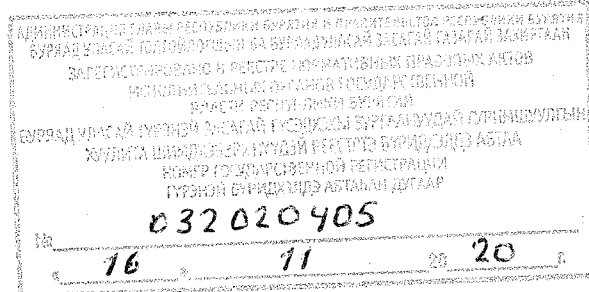 АДМИНИСТРАЦИЯ ГЛАВЫ РЕСПУБЛИКИ БУРЯТИЯ И ПРАВИТЕЛЬСТВА РЕСПУБЛИКИ БУРЯТИЯ
БУРЯАД УЛАСАЙ БА БУРЯАД УЛАСАЙ ЗАСАГАЙ ГАЗАРАЙ ЗАХИРГААН
ЗАРЕГИСТРИРОВАНО В РЕЕСТРЕ НОРМАТИВНЫХ ПРАВОВЫХ АКТОВ
ИСПОЛНИТЕЛЬНЫХ ОРГАНОВ ГОСУДАРСТВЕННОЙ
ВЛАСТИ РЕСПУБЛИКИ БУРЯТИЯ
БУРЯАД УЛАСАЙ ГҮРЭНЭЙ ЗАСАГАЙ
РЕЕСТРТЭ БҮРИДХЭЛДЭ АБТАА
НОМЕР ГОСУДАРСТВЕННОЙ РЕГИСТРАЦИИ
ГҮРЭНЭЙ БҮРИДХЭЛДЭ АБТАҺАН ДУГААР
№ 032020405
« 16 » 11 20 20 г.